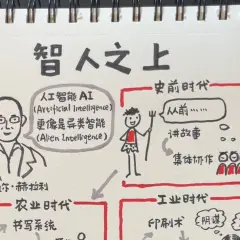 智人之上
人工智能 AI
(Artificial Intelligence)
更像是异类智能
(Alien Intelligence)
史前时代
从前……
讲故事
集体协作
尔·赫拉利
农业时代
书写系统
工业时代
印刷术
阴谋